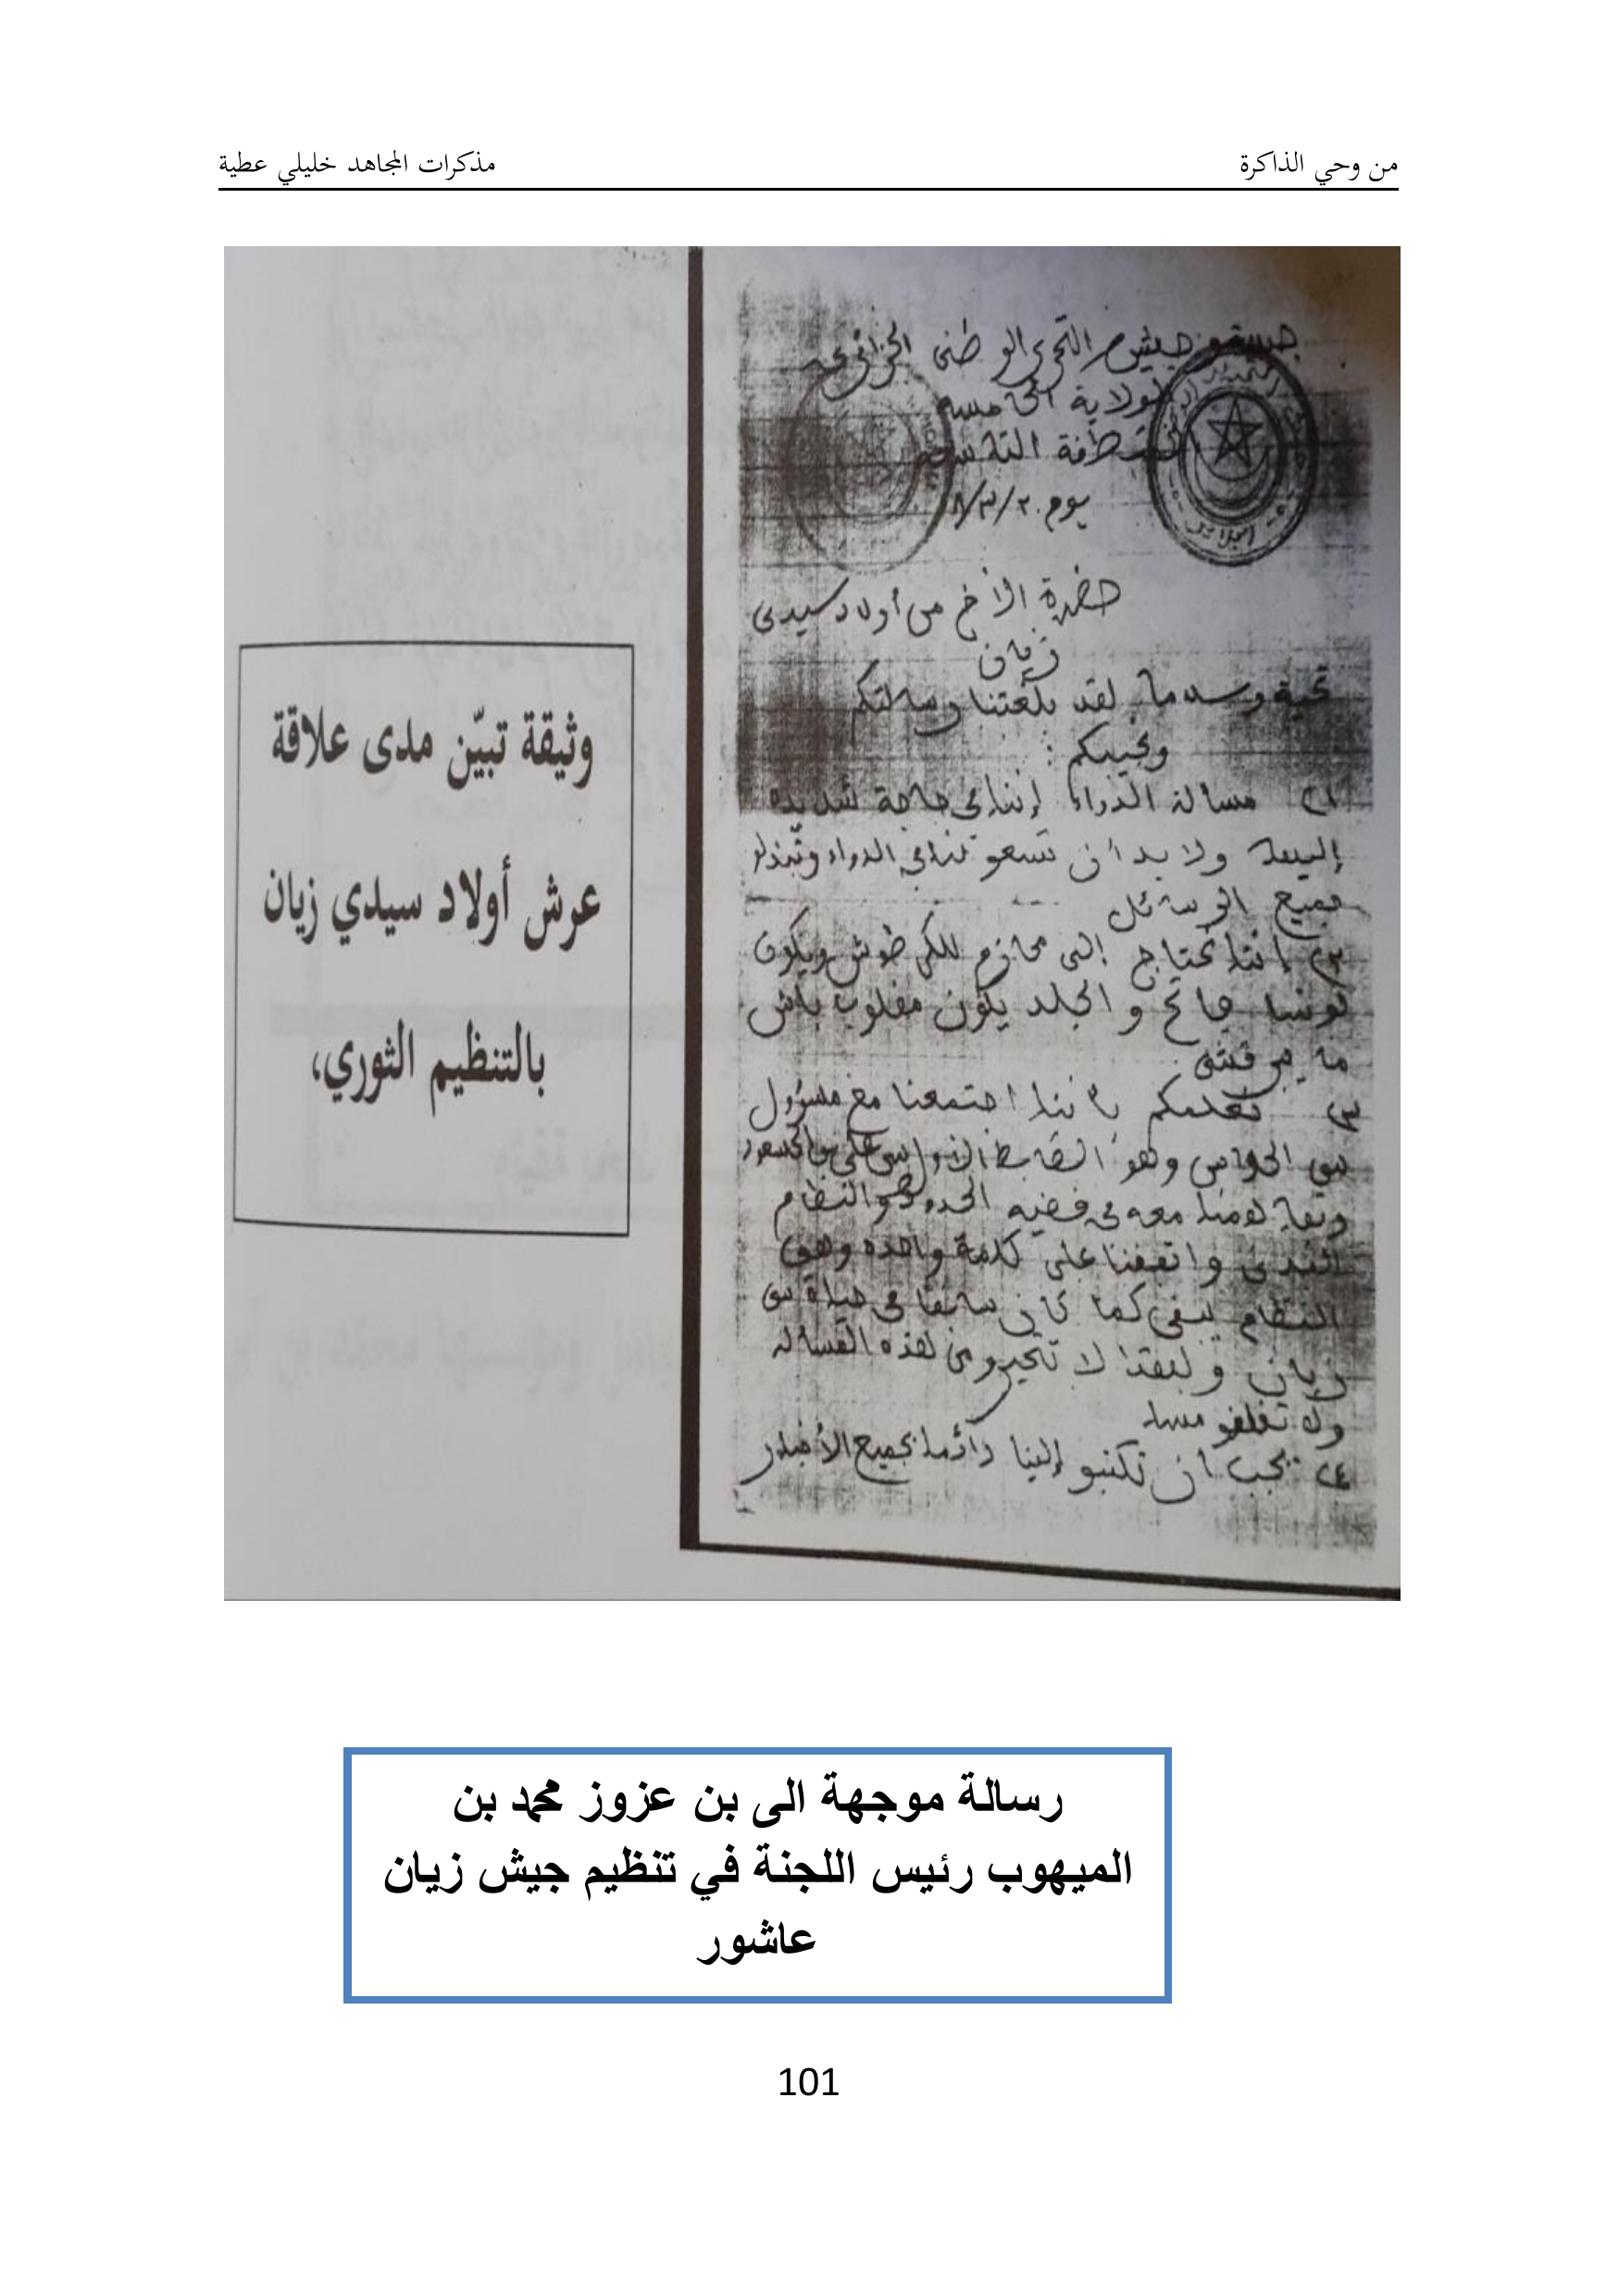 من وحي الذاكرة
مذكرات المجاهد خليلي عطية
جبهة وجيش التحرير الوطني الجزائري
الولاية الخامسة
المنطقة التاسعة
يوم
حضرة الأخ من أولاد سيدي
زيان
تحية وسلاما لقد بلغتنا رسالتكم
ونجيبكم :
١) مسالة الدواء إننا في حاجة شديدة
إليه ولا بد أن تسعو لنا في الدواء وتبذلو
جميع الوسائل
٢) إننا نحتاج إلى محازم للكرطوش ويكون
والجلد يكون مقلوب باش
ما
٣) نعلمكم بأننا اجتمعنا مع مسؤول
وهو الضابط الأول سي علي بن المسعود
وتفاهمنا معه في قضية الحدود والنظام
المدني واتفقنا على كلمة واحدة وهي
النظام يبقى كما كان سابقا في حياة سي
زيان ولهذا لا تتحيرو من هذه المسالة
ولا
٤) يجب ان تكتبو إلينا دائما بجميع الأخبار
وثيقة تبيّن مدى علاقة
عرش أولاد سيدي زيان
بالتنظيم الثوري،
رسالة موجهة الى بن عزوز محمد بن
الميهوب رئيس اللجنة في تنظيم جيش زيان
عاشور
101